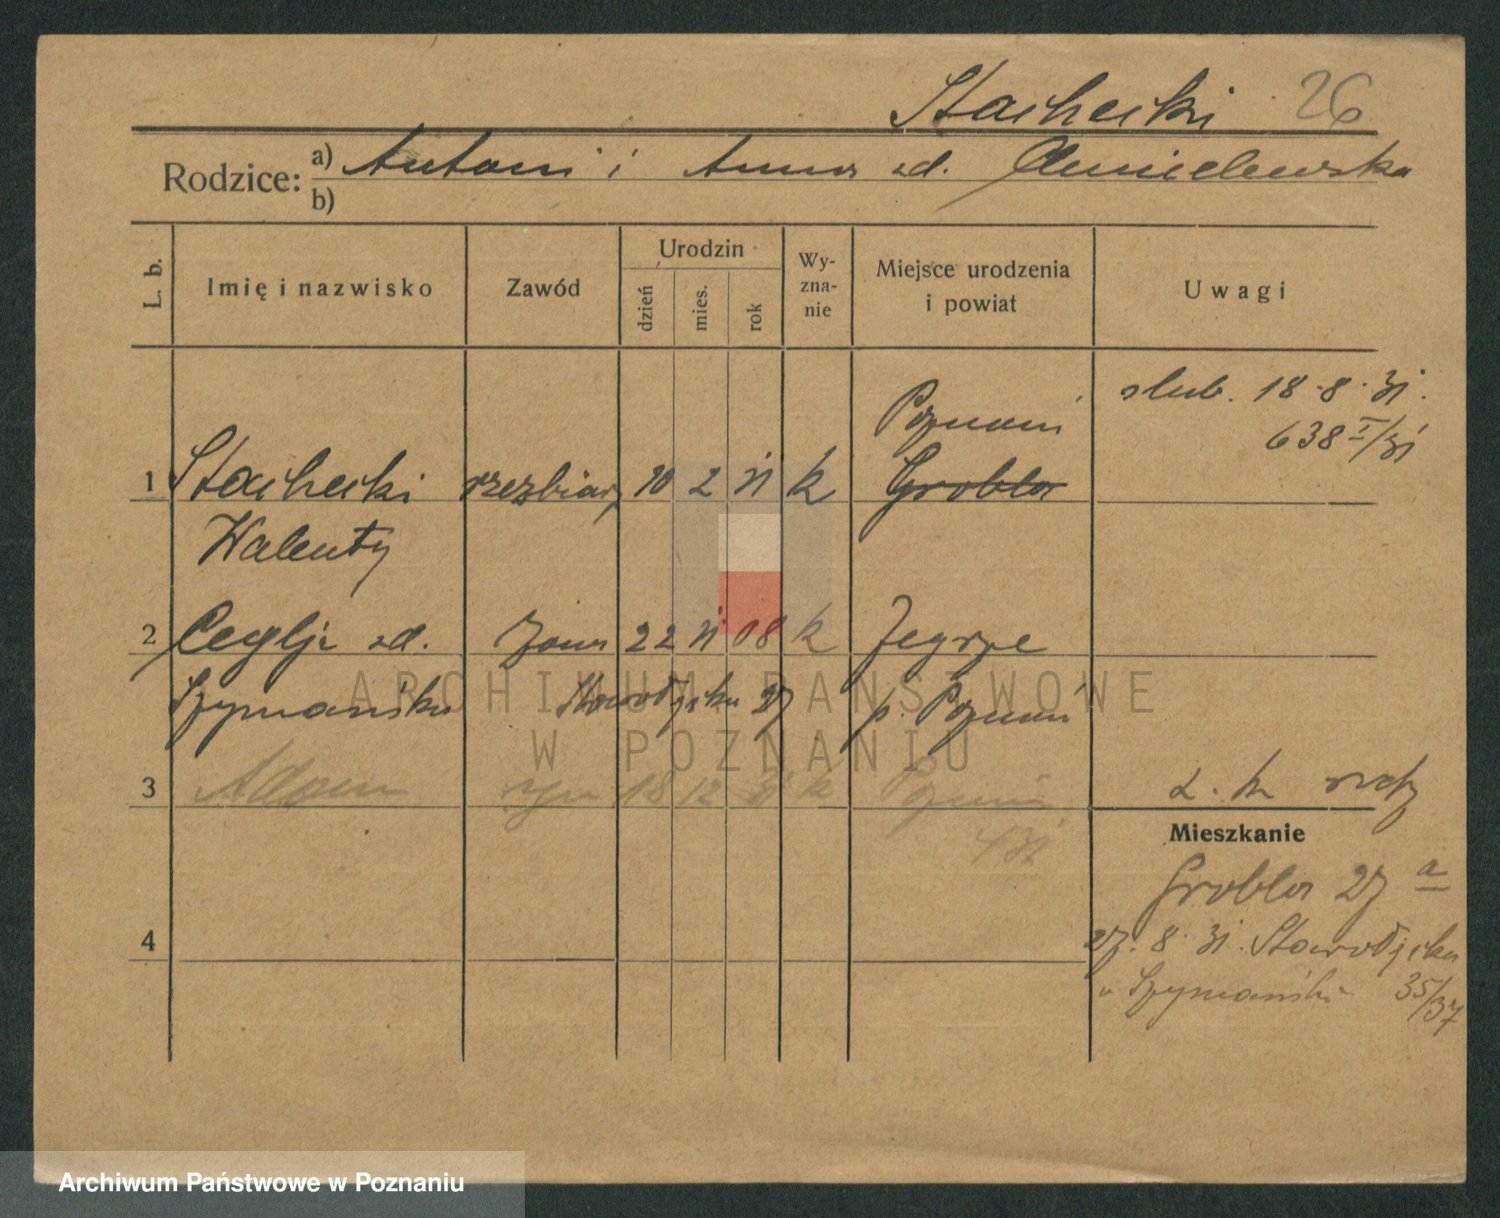 Stachecki 26
Rodzice: a) Antoni i Anna zd. Chmielewska
b)
L. b. Imię i nazwisko Zawód Urodzin dzień mies. rok Wy-zna-nie Miejsce urodzenia i powiat Uwagi
ślub. 18.8.31.
Poznań
638 I/31
1 Stachecki rzeźbiarz 10 2 k Grobla
Walenty
2 zd. żona 22 11 08 k Żegrze
Szymańska 27 p. Poznań
ARCHIWUM PAŃSTWOWE
W POZNANIU
3 Adam syn 18 12 31 k Poznań
Mieszkanie
Grobla 27 a
4 27.8.31.
u Szymański 35/37
Archiwum Państwowe w Poznaniu